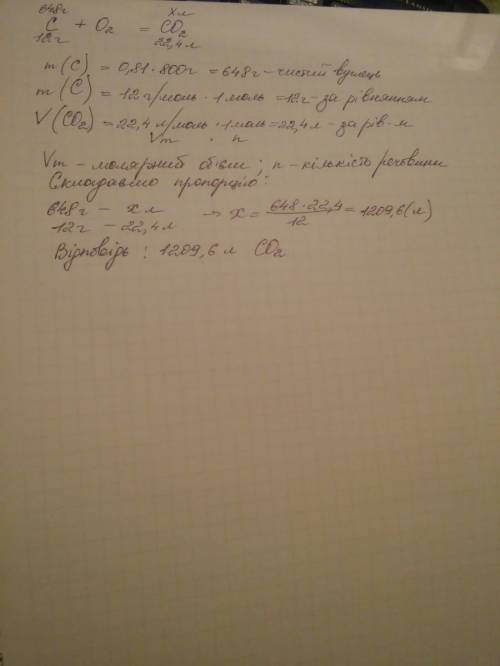 648г х л
C + O₂ = CO₂
12г 22,4л
m(C) = 0,81·800г = 648г - чистий вуглець
m(C) = 12г/моль · 1моль = 12г - за рівнянням
V(CO₂) = 22,4 л/моль · 1моль = 22,4 л - за рів-м
Vm · n
Vm - молярний об'єм; n - кількість речовини
Складаємо пропорцію:
648г - х л → х = 648·22,4/12 = 1209,6(л)
12г - 22,4л
Відповідь: 1209,6 л CO₂